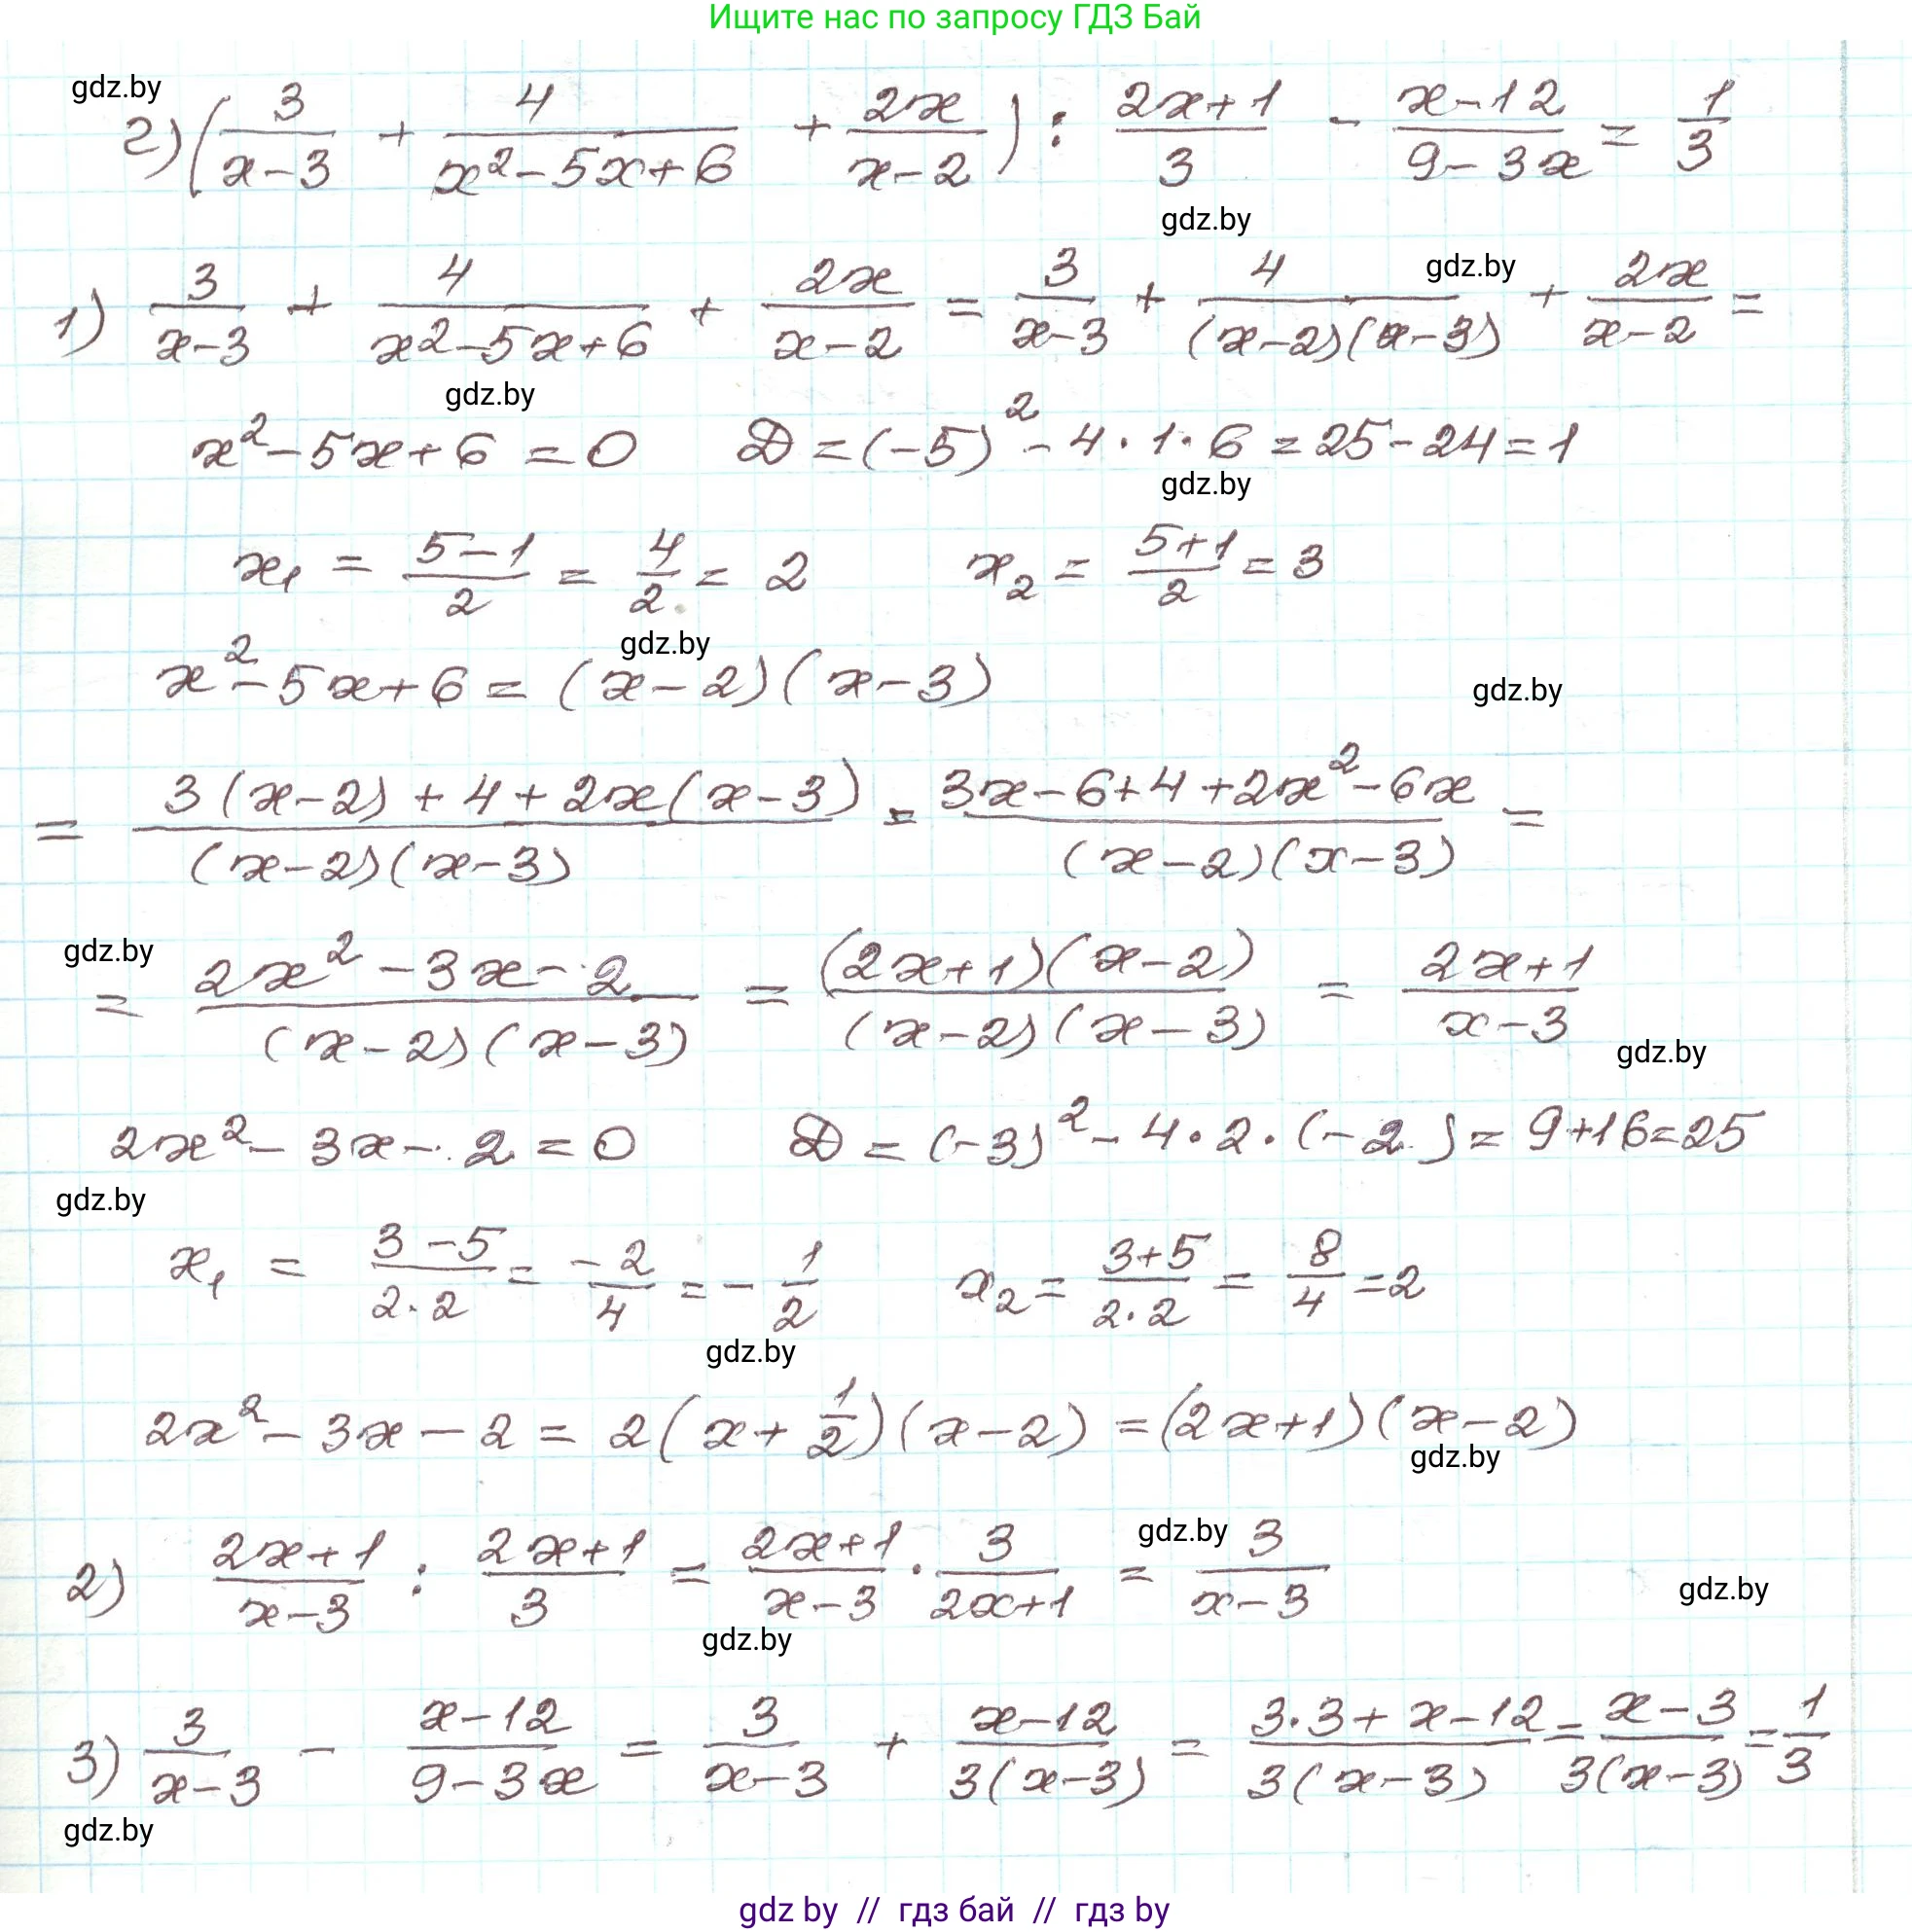 Ищите нас по запросу ГДЗ Бай
gdz.by
г) (3/(x-3) + 4/(x²-5x+6) + 2x/(x-2)) : (2x+1)/3 - (x-12)/(9-3x) = 1/3
gdz.by
gdz.by
1) 3/(x-3) + 4/(x²-5x+6) + 2x/(x-2) = 3/(x-3) + 4/((x-2)(x-3)) + 2x/(x-2) =
gdz.by
x²-5x+6=0 D=(-5)²-4·1·6=25-24=1
gdz.by
x₁ = (5-1)/2 = 4/2 = 2 x₂ = (5+1)/2 = 3
gdz.by
x²-5x+6=(x-2)(x-3)
gdz.by
= (3(x-2)+4+2x(x-3))/((x-2)(x-3)) = (3x-6+4+2x²-6x)/((x-2)(x-3)) =
gdz.by
= (2x²-3x-2)/((x-2)(x-3)) = ((2x+1)(x-2))/((x-2)(x-3)) = (2x+1)/(x-3)
gdz.by
2x²-3x-2=0 D=(-3)²-4·2·(-2)=9+16=25
gdz.by
x₁ = (3-5)/(2·2) = -2/4 = -1/2 x₂ = (3+5)/(2·2) = 8/4 = 2
gdz.by
2x²-3x-2=2(x+1/2)(x-2)=(2x+1)(x-2)
gdz.by
gdz.by
2) (2x+1)/(x-3) : (2x+1)/3 = (2x+1)/(x-3) · 3/(2x+1) = 3/(x-3)
gdz.by
gdz.by
3) 3/(x-3) - (x-12)/(9-3x) = 3/(x-3) + (x-12)/(3(x-3)) = (3·3+x-12)/(3(x-3)) = (x-3)/(3(x-3)) = 1/3
gdz.by
gdz by // гдз бай // гдз by